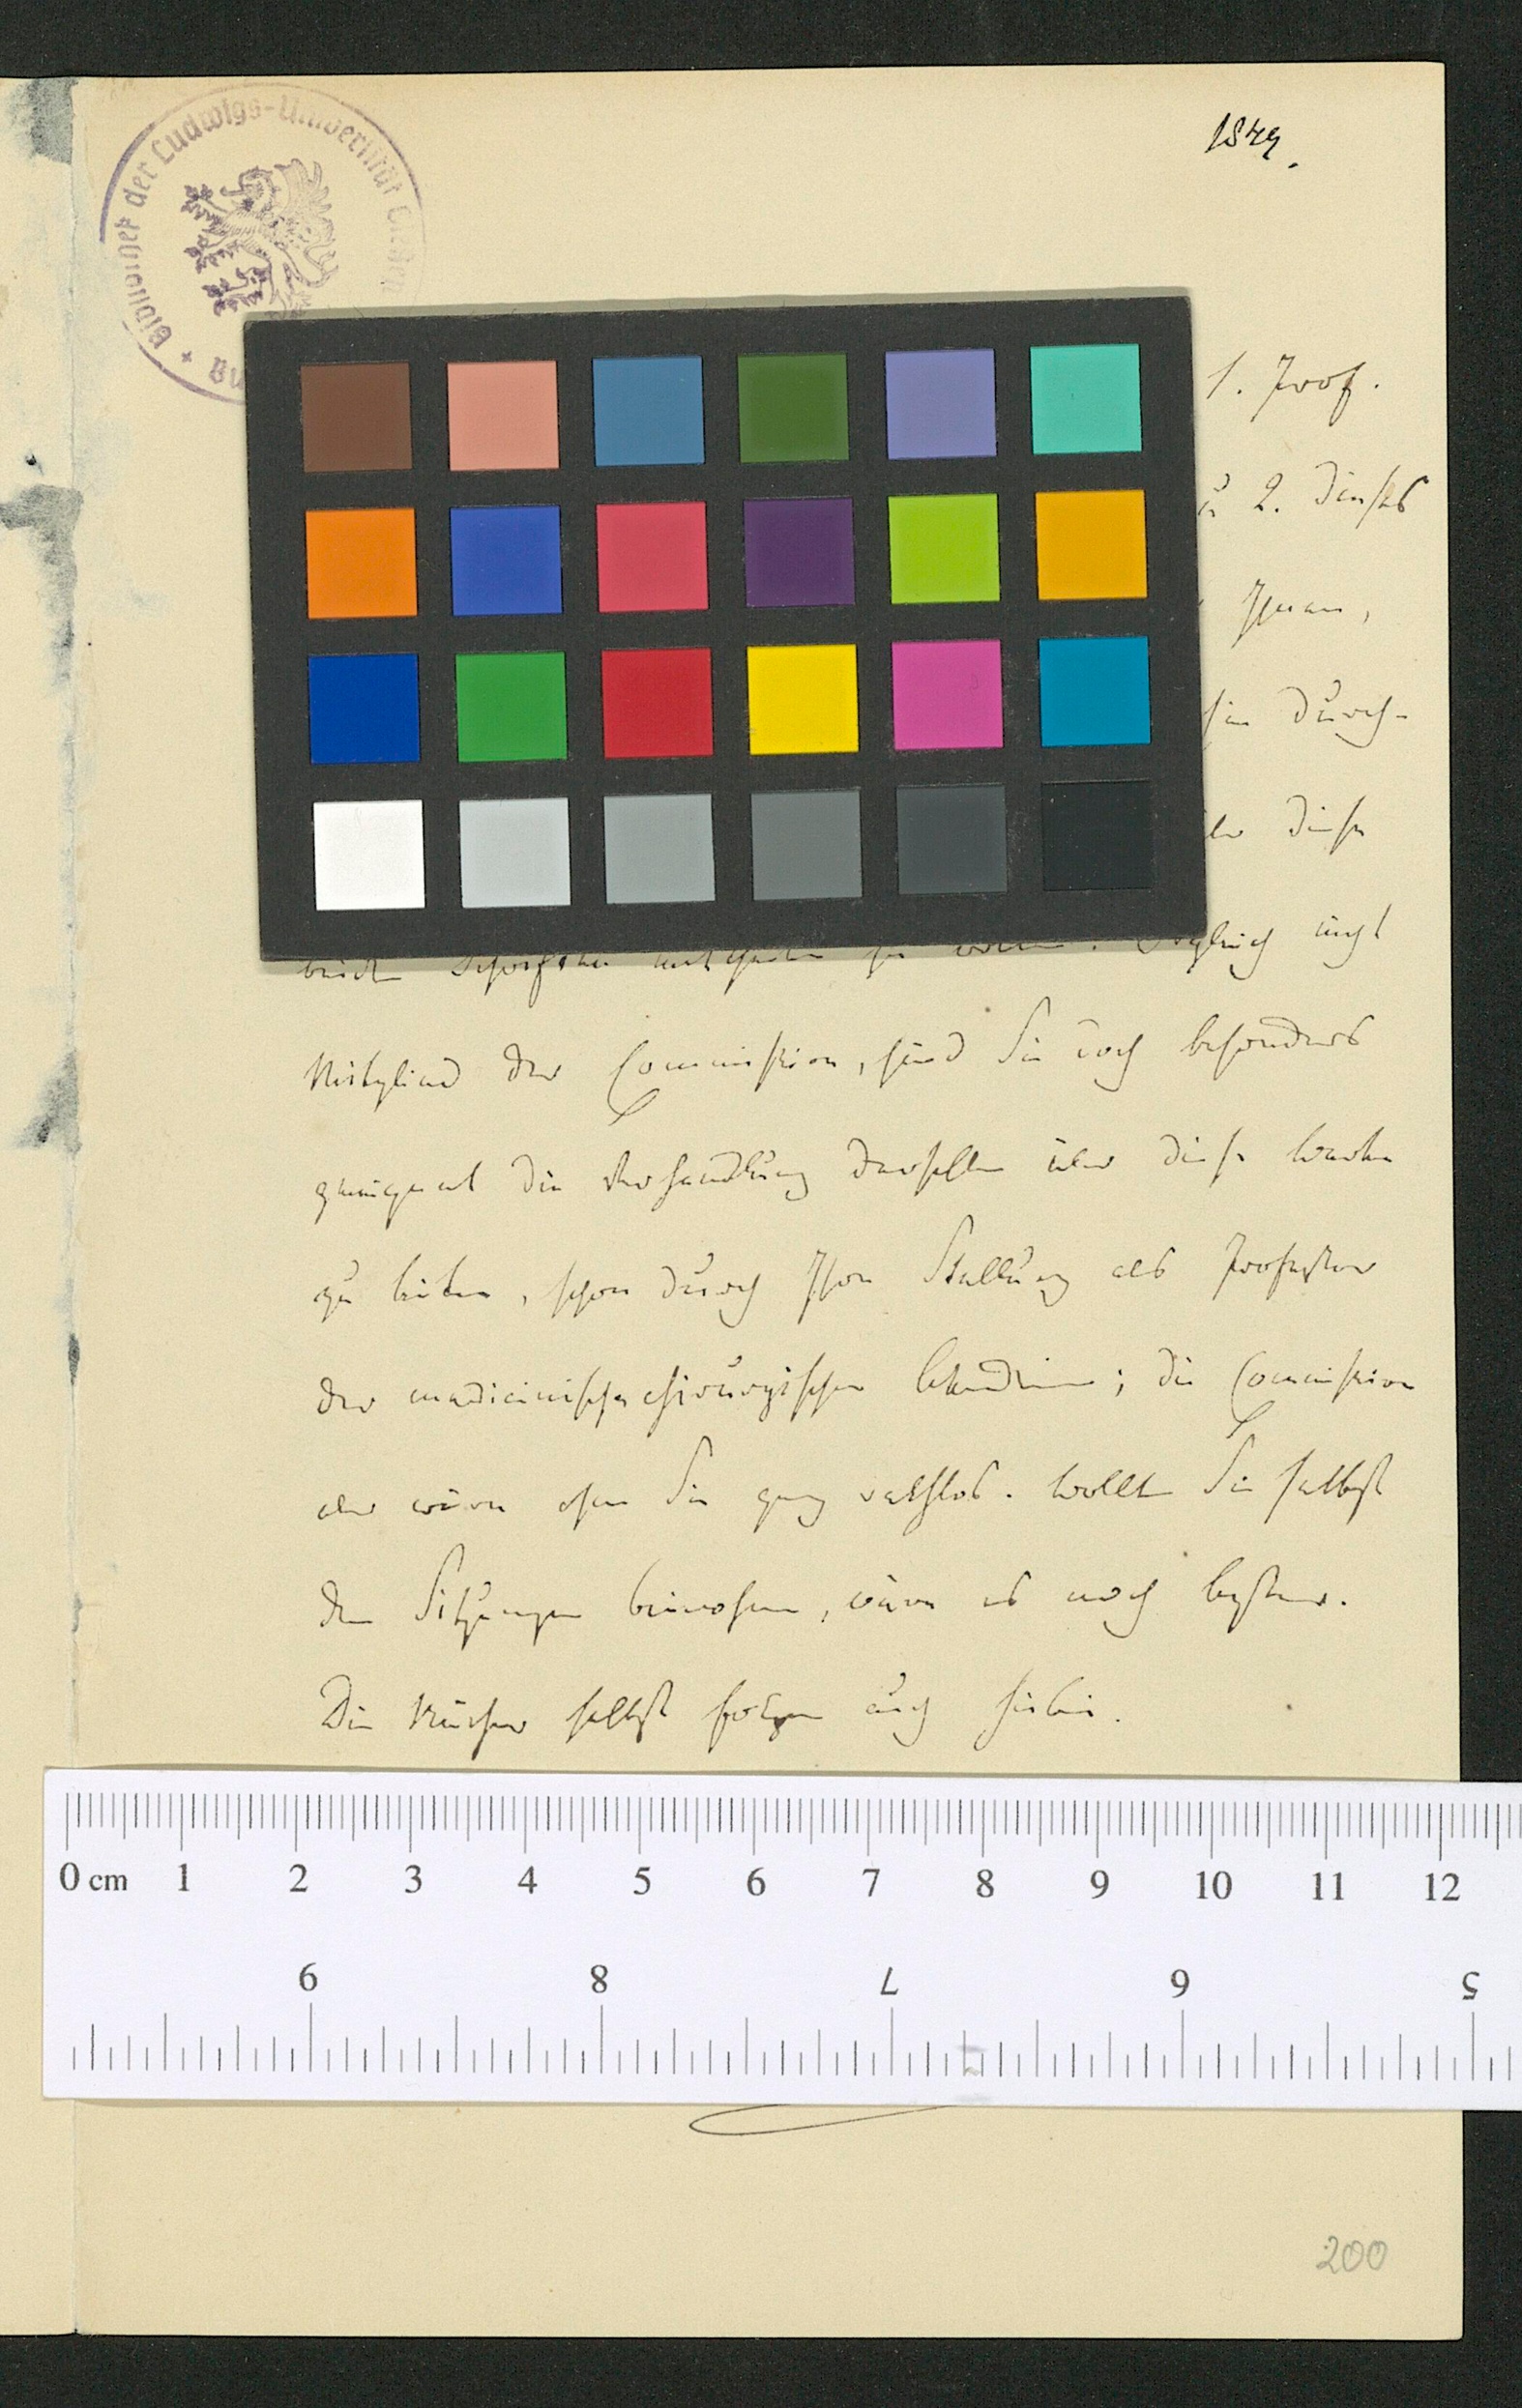 1849.
Bibliothek der Ludwigs-Universität Gießen
1. Prof.
u 2. dieses
Ihnen,
sie durch-
über diese
beide Schriften mittheilen zu wollen. Obgleich nicht
Mitglied der Commission, sind Sie doch besonders
geeignet die Verhandlung derselben über diese Werke
zu leiten, schon durch Ihre Stellung als Professor
der medicinisch chirurgischen Akademie; die Commission
aber wäre ohne Sie ganz rathlos. Wollten Sie selbst
den Sitzungen beiwohnen, wäre es noch besser.
Die Bücher selbst folgen auch hiebei.
0 cm 1 2 3 4 5 6 7 8 9 10 11 12
9 8 7 6 5
200